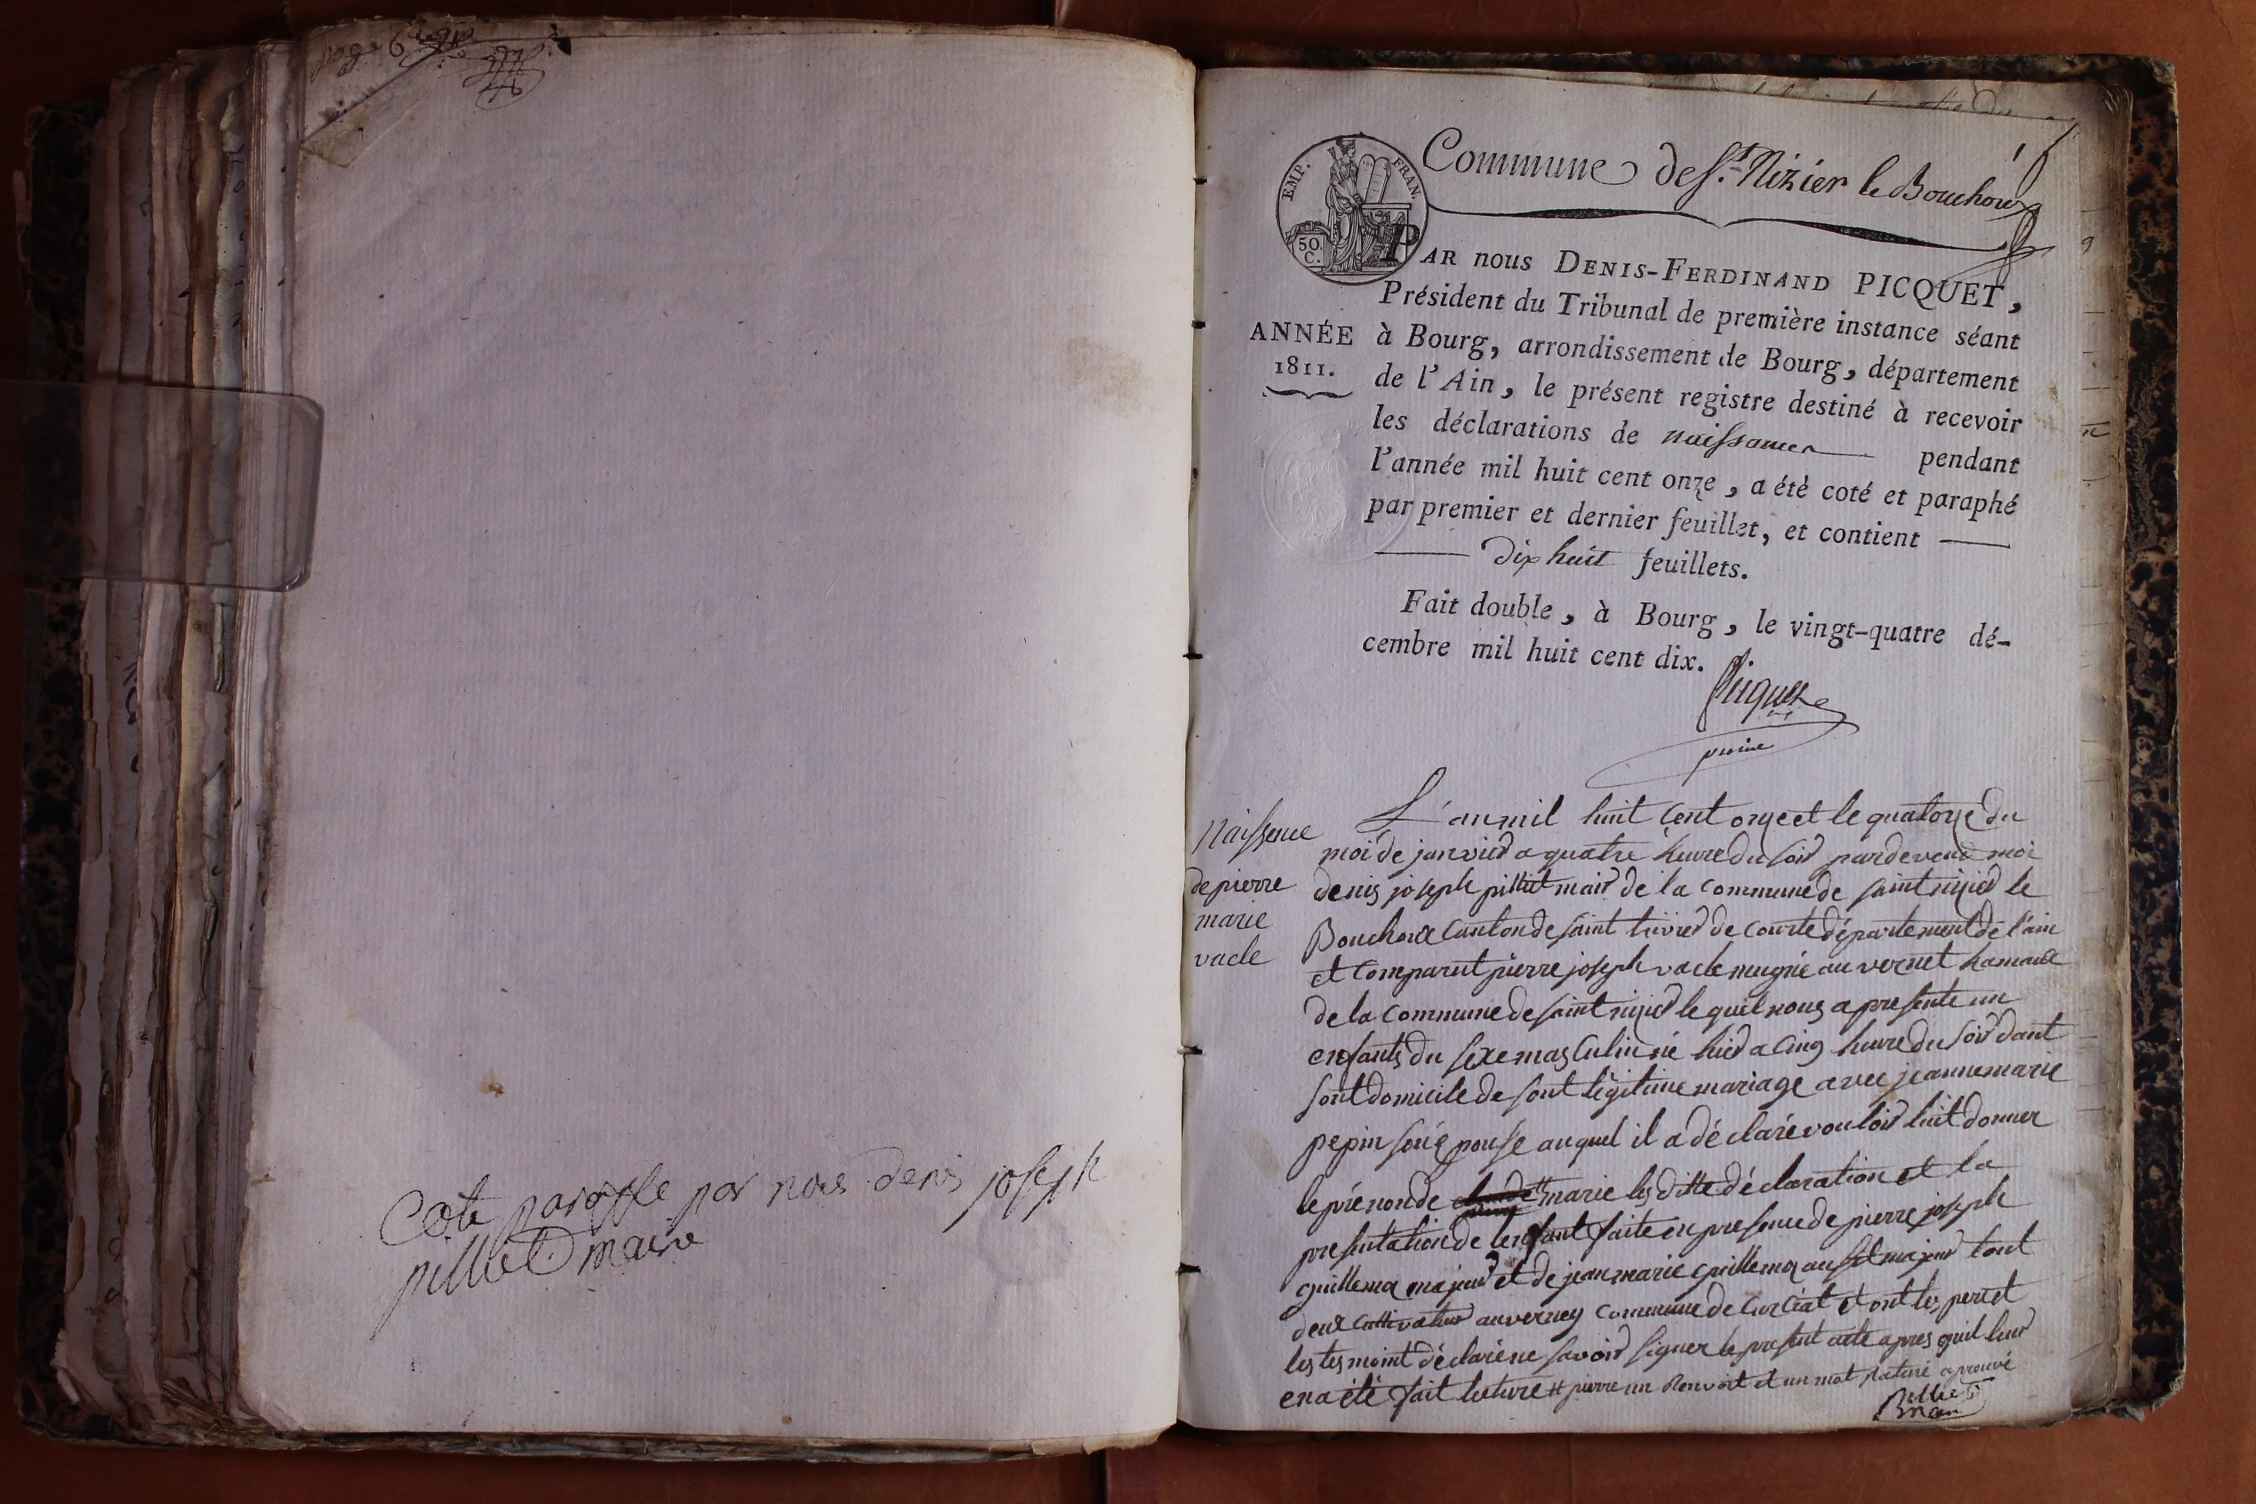 page 6
Coté paraffe par nous denis joseph
pilliet maire
Commune de St. Nizier le Bouchoux
EMP. FRAN.
50.
C.
PAR nous DENIS-FERDINAND PICQUET,
Président du Tribunal de première instance séant
ANNÉE
1811.
à Bourg, arrondissement de Bourg, département
de l'Ain, le présent registre destiné à recevoir
les déclarations de naissances pendant
l'année mil huit cent onze, a été coté et paraphé
par premier et dernier feuillet, et contient
dix huit feuillets.
Fait double, à Bourg, le vingt-quatre dé-
cembre mil huit cent dix.
Picquet
Naissence
de pierre
marie
vacle
L'an mil huit cent onze et le quatorze du
moi de janvier a quatre heure du soir pardevend moi
denis joseph pilliet mair de la commune de saint nizier le
Bouchoux Canton de saint trivier de Courte département de l'ain
et Comparut pierre joseph vacle mugnié au vernet hamaux
de la commune de saint nizier le quel nous a presenté un
enfants du sexe masculin né hier a cinq heure du soir dant
sont domicile de sont légitime mariage avec jeanne marie
pepin son épouse auquel il a déclaré vouloir luit donner
le prénon de marie les ditte déclaration et la
presentation de lenfant faite en presence de pierre joseph
guillemot majeur et de jean marie guillemot aussit majeur tout
deux cultivateur au verney commune de Curciat et ont les per et
les tesmoint déclaré ne savoir signer le present acte apres quil leur
en a été fait lecture # pierre un Renvoit et un mot Raturé aprouvé
Pilliet